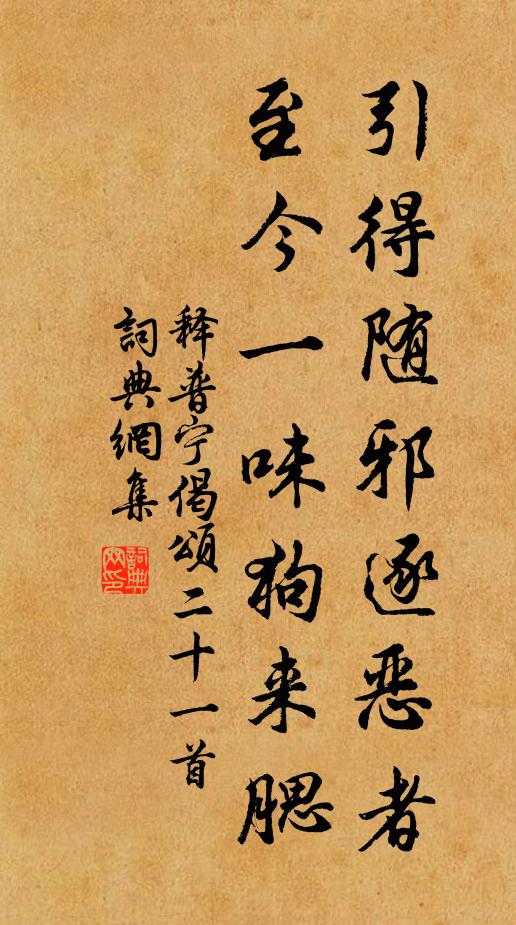 引得随邪逐恶者
至今一味狗来腮
释普宁偈颂二十一首
词典網集
詞典
网印